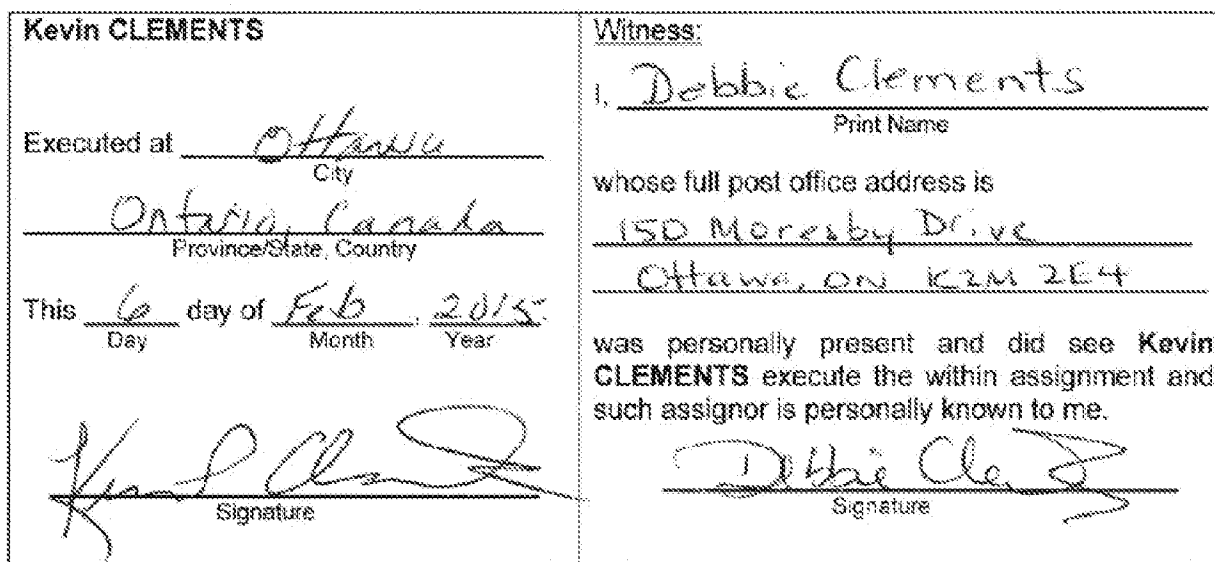 Kevin CLEMENTS
Executed at Ottawa
City
Ontario, Canada
Province/State, Country
This 6 day of Feb, 2015.
Day Month Year
Signature
Witness:
I, Debbie Clements
Print Name
whose full post office address is
150 Moresby Drive
Ottawa, ON K2M 2E4
was personally present and did see Kevin
CLEMENTS execute the within assignment and
such assignor is personally known to me.
Debbie Cle
Signature